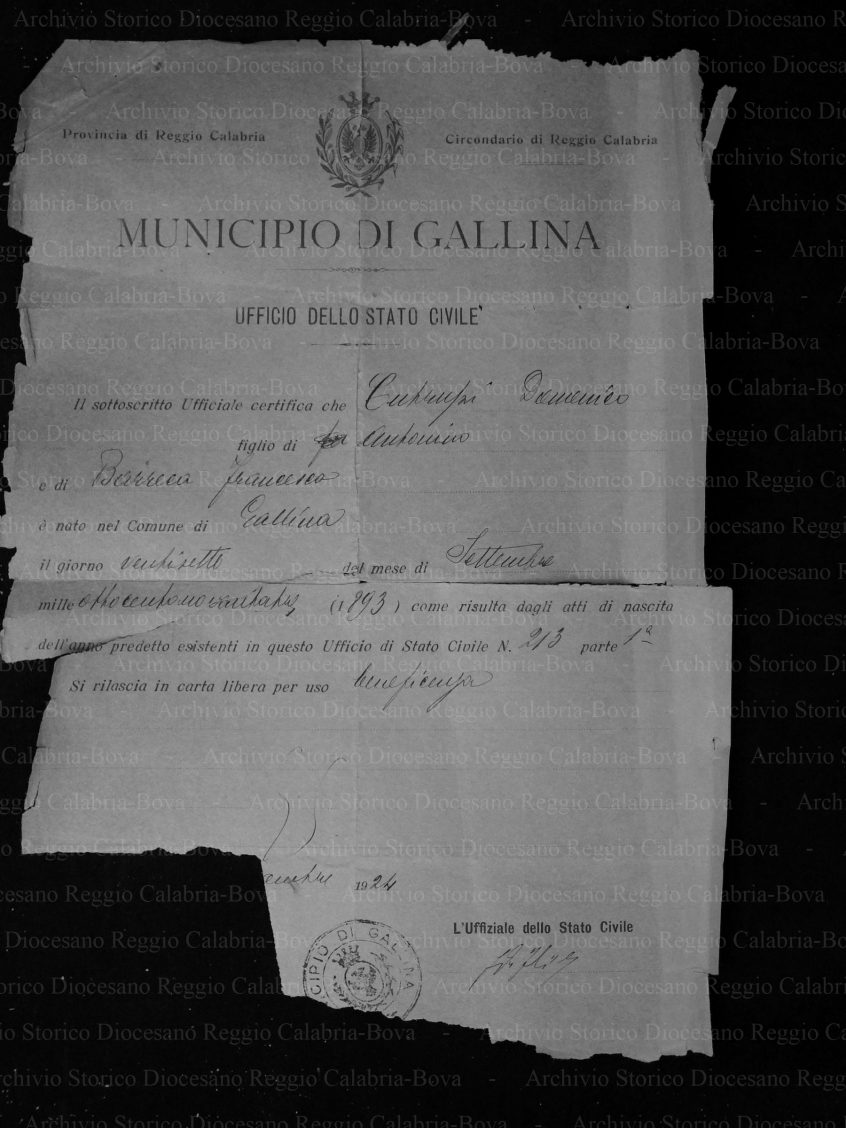 Provincia di Reggio Calabria
Circondario di Reggio Calabria
MUNICIPIO DI GALLINA
UFFICIO DELLO STATO CIVILE
Il sottoscritto Ufficiale certifica che Cutrupi Domenico
figlio di Antonino
e di Barreca Francesca
è nato nel Comune di Gallina
il giorno ventisette del mese di Settembre
mille ottocentonovantatre (1893) come risulta dagli atti di nascita
dell'anno predetto esistenti in questo Ufficio di Stato Civile N. 213 parte 1ª
Si rilascia in carta libera per uso beneficenza
embre 1924
L'Uffiziale dello Stato Civile
CIPIO DI GALLINA
Archivio Storico Diocesano Reggio Calabria-Bova